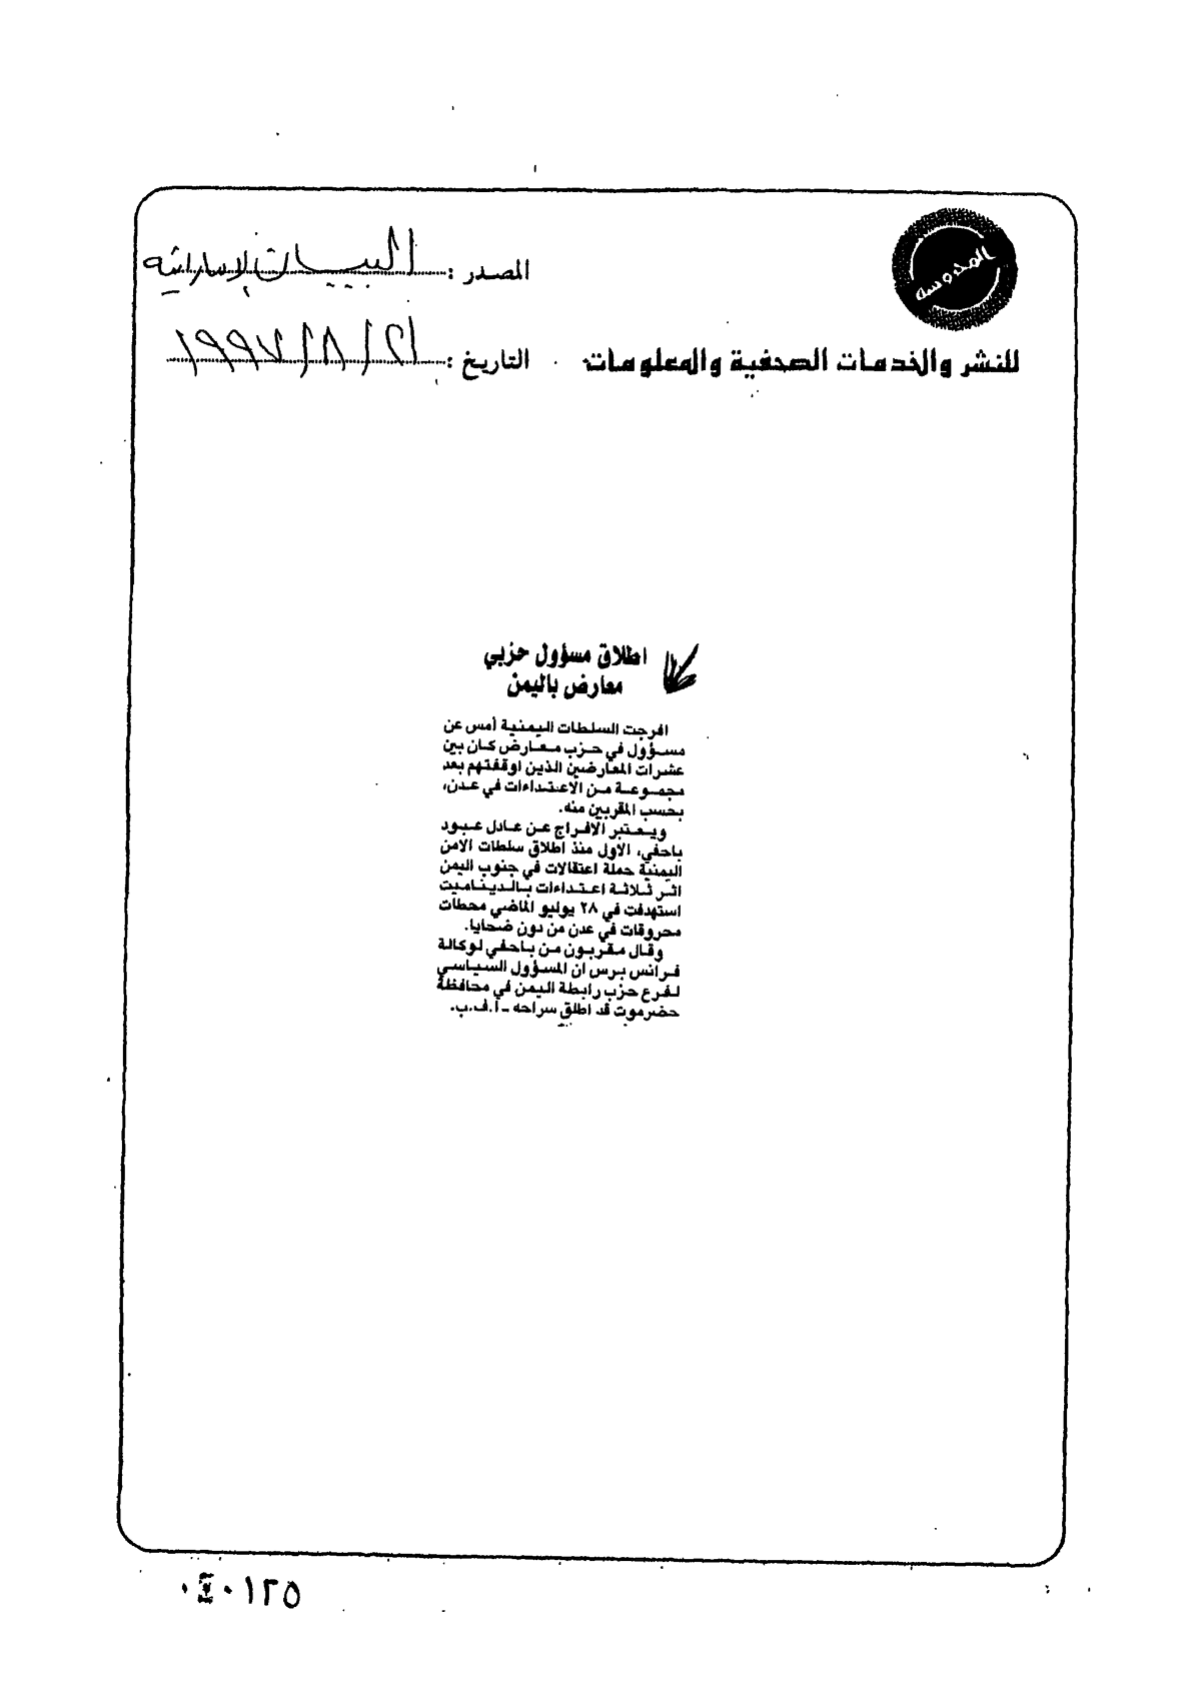 المحروسة
المصدر : البيان الإماراتية
للنشر والخدمات الصحفية والمعلومات
التاريخ : ٢١ / ٨ / ١٩٩٧
اطلاق مسؤول حزبي
معارض باليمن
افرجت السلطات اليمنية أمس عن
مسؤول في حزب معارض كان بين
عشرات المعارضين الذين اوقفتهم بعد
مجموعة من الاعتداءات في عدن،
بحسب المقربين منه.
ويعتبر الافراج عن عادل عبود
باحفي، الاول منذ اطلاق سلطات الامن
اليمنية حملة اعتقالات في جنوب اليمن
اثر ثلاثة اعتداءات بالديناميت
استهدفت في ٢٨ يوليو الماضي محطات
محروقات في عدن من دون ضحايا.
وقال مقربون من باحفي لوكالة
فرانس برس ان المسؤول السياسي
لفرع حزب رابطة اليمن في محافظة
حضرموت قد اطلق سراحه ـ ا.ف.ب.